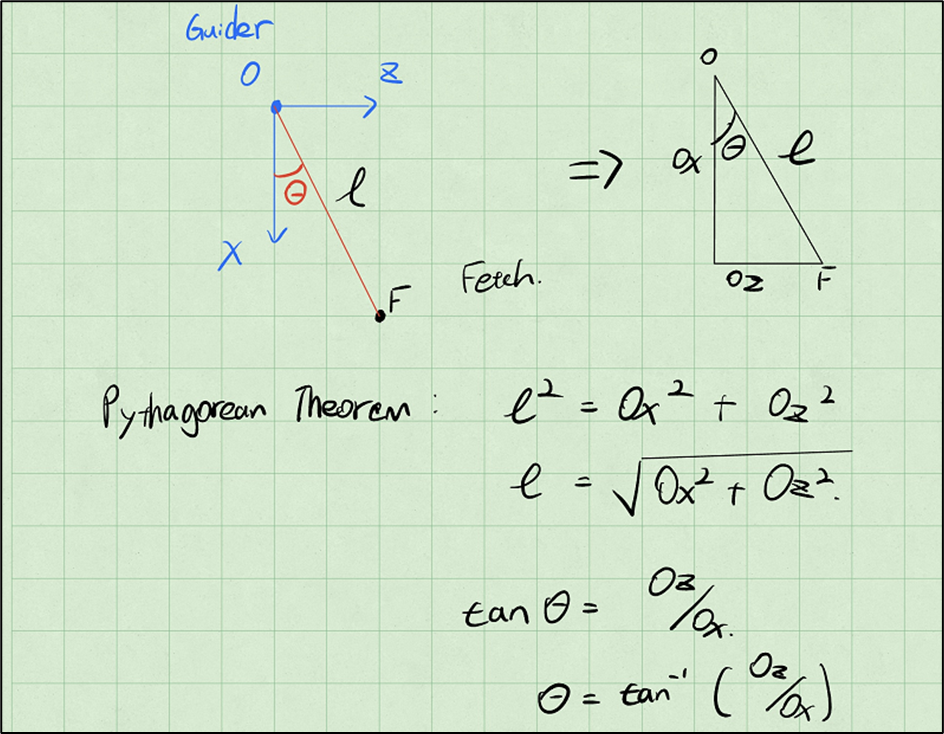 Guider
O
Z
X
θ
l
F
Fetch.
=>
O
Ox
θ
l
Oz
F
Pythagorean Theorem : l² = Ox² + Oz²
l = √(Ox² + Oz²).
tan θ = Oz/Ox.
θ = tan⁻¹ (Oz/Ox)